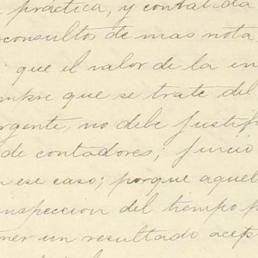 práctica, y contabilida
consultos de mas nota
que el valor de la in
mpre que se trate del
rgente, no debe justifi
de contadores; juicio
n ese caso; porque aquel
nspeccion del tiempo p
ner un resultado acep